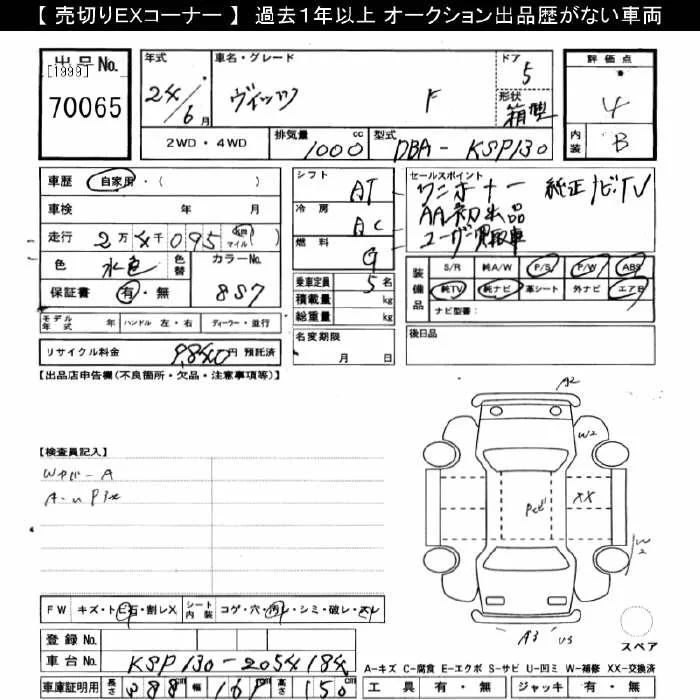 【 売切りEXコーナー 】 過去１年以上 オークション出品歴がない車両
出品No.
[1999]
70065
年式
24/6月
車名・グレード
ヴィッツ F
ドア
5
形状
箱型
評価点
4
内装
B
2WD・4WD
排気量
1000 cc
型式
DBA-KSP130
車歴 自家用・( )
車検 年 月
走行 2万4千095 km マイル ( )
色 水色 色替
カラーNo. 8S7
保証書 有・無
モデル年式 年 ハンドル 左・右 ディーラー・並行
リサイクル料金 9,840円 預託済
シフト AT
冷房 AC
燃料 G
乗車定員 5名
積載量 kg
総重量 kg
名変期限
月 日
セールスポイント
ワンオーナー 純正ナビTV
AA初出品
ユーザー買取車
装備品
S/R 純A/W P/S P/W ABS
純TV 純ナビ 革シート 外ナビ エアB
ナビ型番:
後日品
【出品店申告欄(不良箇所・欠品・注意事項等)】
【検査員記入】
A2
W2
XX
W2
A3 U3
スペア
FW キズ・トビ石・割レX
シート内装 コゲ・穴・汚レ・シミ・破レ・スレ
登録 No.
車台 No. KSP130-2054184
車庫証明用 長さ 388cm 幅 169cm 高さ 150cm
A-キズ C-腐食 E-エクボ S-サビ U-凹ミ W-補修 XX-交換済
工具 有・無 ジャッキ 有・無